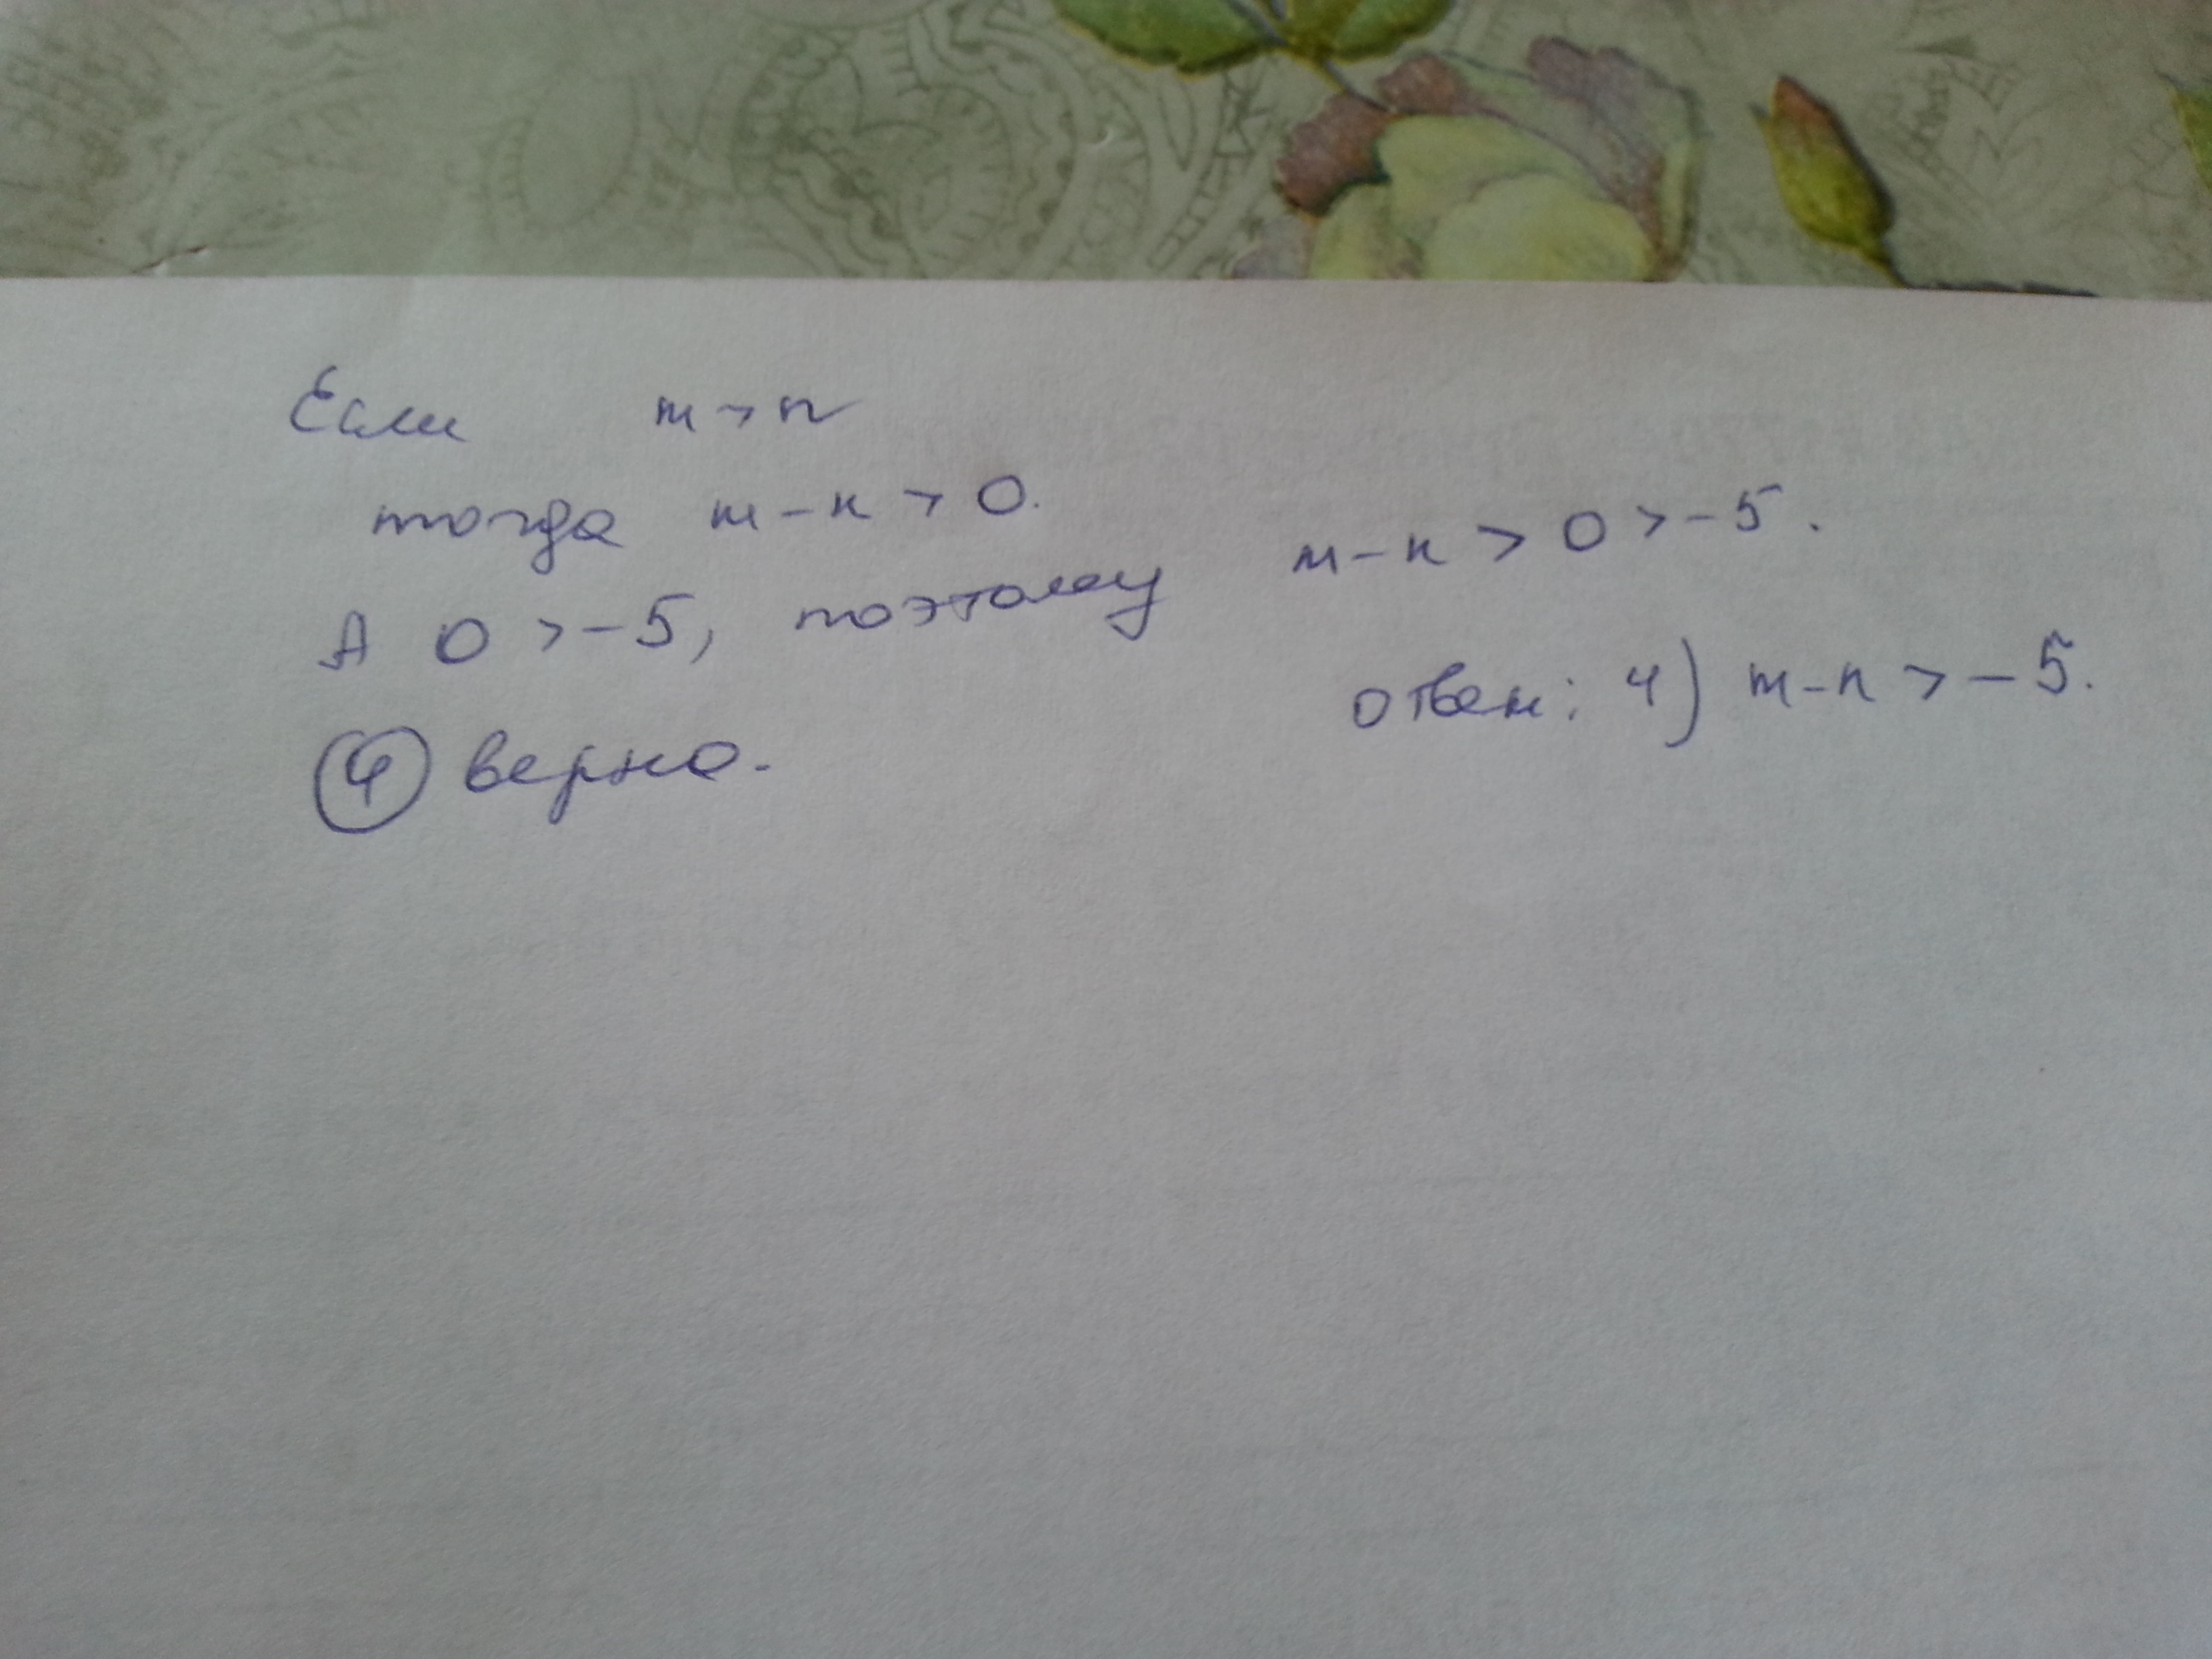 Если m > n
тогда m - n > 0.
А 0 > -5, поэтому m - n > 0 > -5.
④ верно.
ответ: 4) m - n > -5.